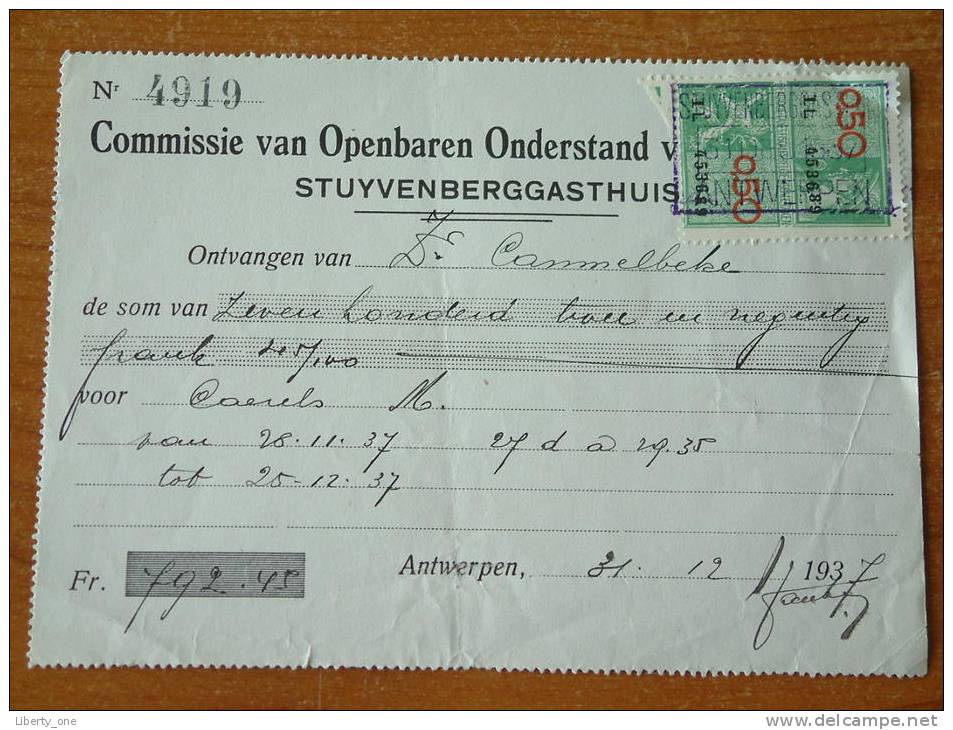 Nr 4919
Commissie van Openbaren Onderstand v
STUYVENBERGGASTHUIS
0.50 0.50
453689
ANTWERPEN
Ontvangen van Dr. Cammelbeke
de som van Zeven honderd twee en negentig
frank 45/100
voor Caerels M.
van 28.11.37 27 d a 29.35
tot 25-12.37
Fr. 792.45
Antwerpen, 31. 12 1937
Liberty_one
www.delcampe.net